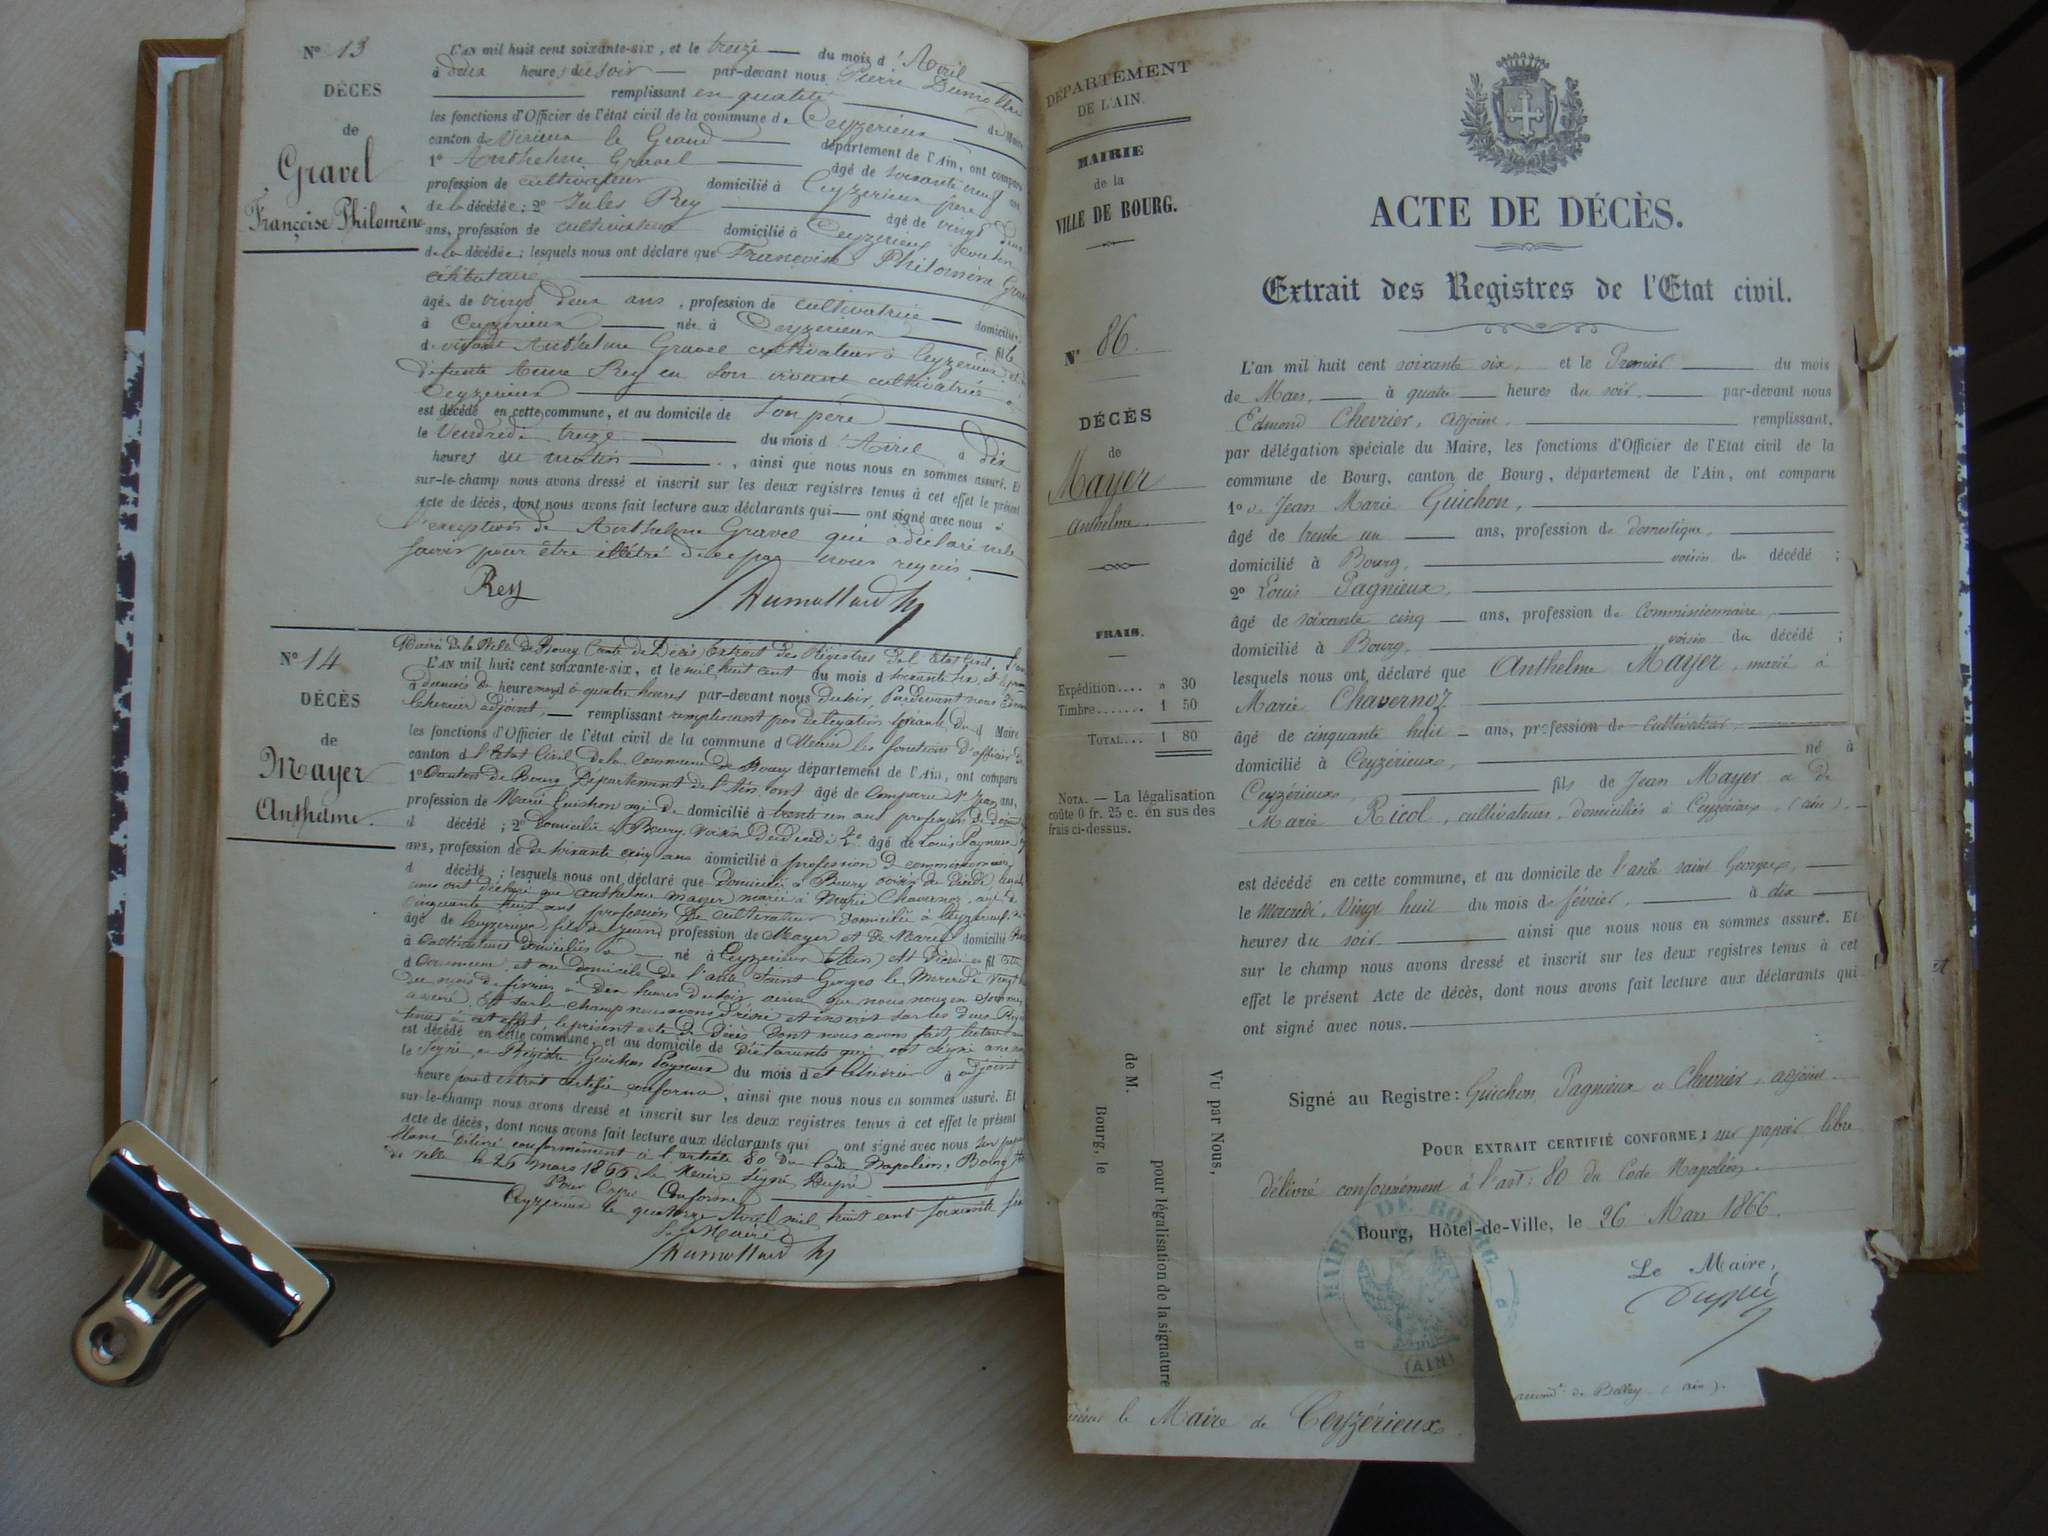 N° 13
DÉCÈS
de
Gravel
Françoise Philomène
L'AN mil huit cent soixante-six, et le treize du mois d'Avril
à deux heures du soir par-devant nous Pierre Dumollard
remplissant en qualité de Maire
les fonctions d'Officier de l'état civil de la commune de Ceyzerieux
canton de Virieux le Grand département de l'Ain, ont comparu
1° Anthelme Gravel âgé de soixante neuf ans
profession de cultivateur domicilié à Ceyzerieux père
de la décédée; 2° Jules Rey âgé de vingt deux
ans, profession de cultivateur domicilié à Ceyzerieux cousin
de la décédée; lesquels nous ont déclaré que Francoise Philomène Gravel
célibataire
âgée de vingt deux ans, profession de cultivatrice domiciliée
à Ceyzerieux née à Ceyzerieux fille
de vivant Anthelme Gravel cultivateur à Ceyzerieux et de
défunte Rey en son vivant cultivatrice à
Ceyzerieux
est décédé en cette commune, et au domicile de son père
le Vendredi treize du mois d'Avril à dix
heures du matin, ainsi que nous nous en sommes assuré. Et
sur-le-champ nous avons dressé et inscrit sur les deux registres tenus à cet effet le présent
Acte de décès, dont nous avons fait lecture aux déclarants qui ont signé avec nous à
l'exception de Anthelme Gravel qui a déclaré ne le
savoir pour être illétré de ce par nous requis.
Rey Dumollard
N° 14
DÉCÈS
de
Mayer
Anthelme.
Mairie de la Ville de Bourg Acte de Décès Extrait des Registres de l'Etat Civil. L'an
L'AN mil huit cent soixante-six, et le mil huit cent du mois d soixante six, et le premier
à du mois de heure mars à quatre heures par-devant nous du soir, Pardevant nous Edmond
Chevrier adjoint, remplissant remplissant par délégation spéciale du d Maire
les fonctions d'Officier de l'état civil de la commune d Maire les fonctions d'officier de
canton d l'Etat Civil de la commune de Bourg département de l'Ain, ont comparu
1° Canton de Bourg Département de l'Ain ont âgé de comparu 1° Jean ans,
profession de Marie Guichon agé de domicilié à trente un ans profession de domestique
d décédé; 2° domicilié à Bourg voisin du décédé 2° âgé de Louis Pagnieux
ans, profession de de soixante cinq ans domicilié à profession de commissionnaire
d décédé; lesquels nous ont déclaré que domicilié à Bourg voisin du décédé, lesquels
nous ont déclaré que Anthelme Mayer marié à Marie Chavernoz, agé de
cinquante huit ans profession de cultivateur domicilié à Ceyzerieux né
âgé de Ceyzerieux, fils de Jean profession de Mayer et de Marie domicilié Ricol
à cultivateurs domiciliés à né à Ceyzerieux (Ain) est décédé en fil cette
d Commune, et au domicile de l'asile Saint Georges le Mercredi vingt huit
du mois de février à dix heures du soir ainsi que nous nous en sommes
assuré, Et sur le champ nous avons dressé et inscrit sur les deux Registres
tenus à cet effet le présent acte de décès dont nous avons fait lecture aux
est décédé en cette commune, et au domicile de déclarants qui ont signé avec nous
le Signé au Régistre, Guichon Pagnieux du mois d et Chevrier à adjoint
heure pour d extrait certifié conforme, ainsi que nous nous en sommes assuré. Et
sur-le-champ nous avons dressé et inscrit sur les deux registres tenus à cet effet le présent
Acte de décès, dont nous avons fait lecture aux déclarants qui ont signé avec nous sur papier
libre délivré conformément à l'article 80 du Code Napoléon. Bourg Hôtel
de ville le 26 mars 1866 Le Maire Signé, Dupré
Pour Copie Conforme
Ceyzerieux le quatorze Avril mil huit cent soixante six
Le Maire
Dumollard
DÉPARTEMENT
DE L'AIN.
MAIRIE
de la
VILLE DE BOURG.
N° 86.
DÉCÈS
de
Mayer
Anthelme.
FRAIS.
Expédition.... » 30
Timbre....... 1 50
TOTAL... 1 80
NOTA. — La légalisation
coûte 0 fr. 25 c. en sus des
frais ci-dessus.
Vu par Nous,
pour légalisation de la signature
de M.
Bourg, le
ACTE DE DÉCÈS.
Extrait des Registres de l'Etat civil.
L'an mil huit cent soixante six, et le Premier du mois
de Mars, à quatre heures du soir, par-devant nous
Edmond Chevrier, adjoint, remplissant,
par délégation spéciale du Maire, les fonctions d'Officier de l'Etat civil de la
commune de Bourg, canton de Bourg, département de l'Ain, ont comparu
1° Jean Marie Guichon,
âgé de trente un ans, profession de domestique,
domicilié à Bourg, voisin du décédé;
2° Louis Pagnieux,
âgé de soixante cinq ans, profession de Commissionnaire,
domicilié à Bourg, voisin du décédé;
lesquels nous ont déclaré que Anthelme Mayer, marié à
Marie Chavernoz
âgé de cinquante huit ans, profession de cultivateur,
domicilié à Ceyzérieux, né à
Ceyzérieux, fils de Jean Mayer et de
Marie Ricol, cultivateurs, domiciliés à Ceyzérieux, (ain).
est décédé en cette commune, et au domicile de l'asile saint Georges,
le Mercredi, Vingt huit du mois de février, à dix
heures du soir ainsi que nous nous en sommes assuré. Et
sur le champ nous avons dressé et inscrit sur les deux registres tenus à cet
effet le présent Acte de décès, dont nous avons fait lecture aux déclarants qui
ont signé avec nous.
Signé au Registre: Guichon, Pagnieux et Chevrier, adjoint.
POUR EXTRAIT CERTIFIÉ CONFORME; sur papier libre
délivré conformément à l'art: 80 du Code Napoléon.
Bourg, Hôtel-de-Ville, le 26 Mars 1866.
Le Maire,
Dupré
MAIRIE DE BOURG
(AIN)
le Maire de Ceyzérieux
de Belley (ain).